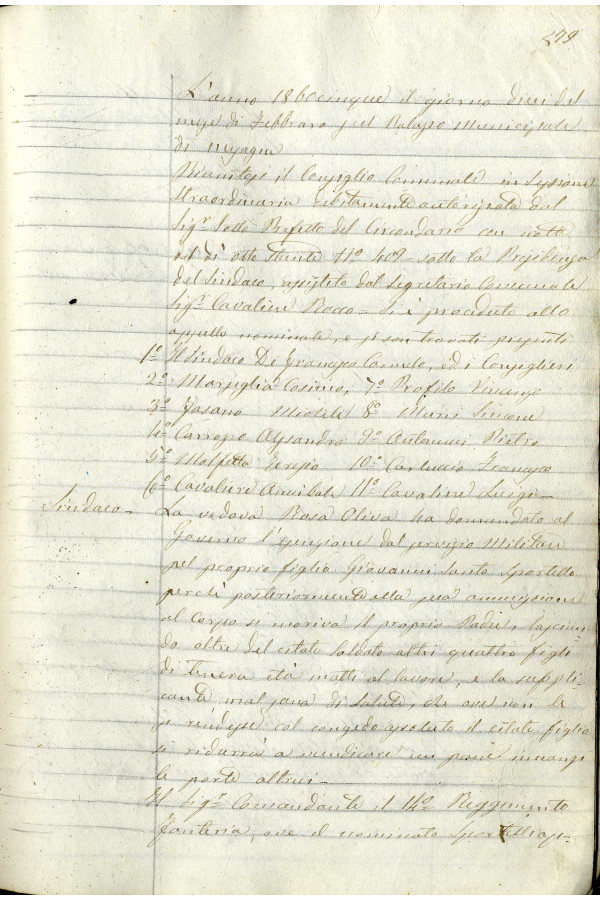 279
L'anno 1860cinque il giorno dieci del
mese di Febbraro nel Palazzo Municipale
di Mesagne
Riunitosi il Consiglio Comunale in Sessione
straordinaria debitamente autorizzata dal
Sig.r Sotto Prefetto del Circondario con nota
del dì otto stante N.o 409 sotto la Presidenza
del Sindaco, assistito dal Segretario Comunale
Sig.r Cavaliere Rocco - Si è proceduto allo
appello nominale, e si son trovati presenti
1.o Il Sindaco De Francesco Carmelo, ed i Consiglieri
2.o Marsiglia Cosimo, 7.o Profilo Vincenzo
3.o Fasano Michele 8.o Murri Simone
4.o Carrozzo Alessandro 9.o Antonucci Pietro
5.o Molfetta Serafio 10.o Carluccio Francesco
6.o Cavaliere Annibale 11.o Cavaliere Luigi -
Sindaco - La vedova Rosa Oliva ha domandato al
Governo l'esenzione dal servizio Militare
pel proprio figlio Giovanni Santo Sportello
perchè posteriormente alla sua ammissione
al Corpo si moriva il proprio Padre, lascian
do oltre del citato soldato altri quattro figli
di tenera età inatti al lavoro, e la suppli
cante mal sana di salute, che ove non le
si rendesse col congedo assoluto il citato figlio
si ridurrà a mendicare un pane innanzi
le porte altrui -
Il Sig.r Comandante il 14.o Reggimento
Fanteria, ove il nominato Sportelli ap-